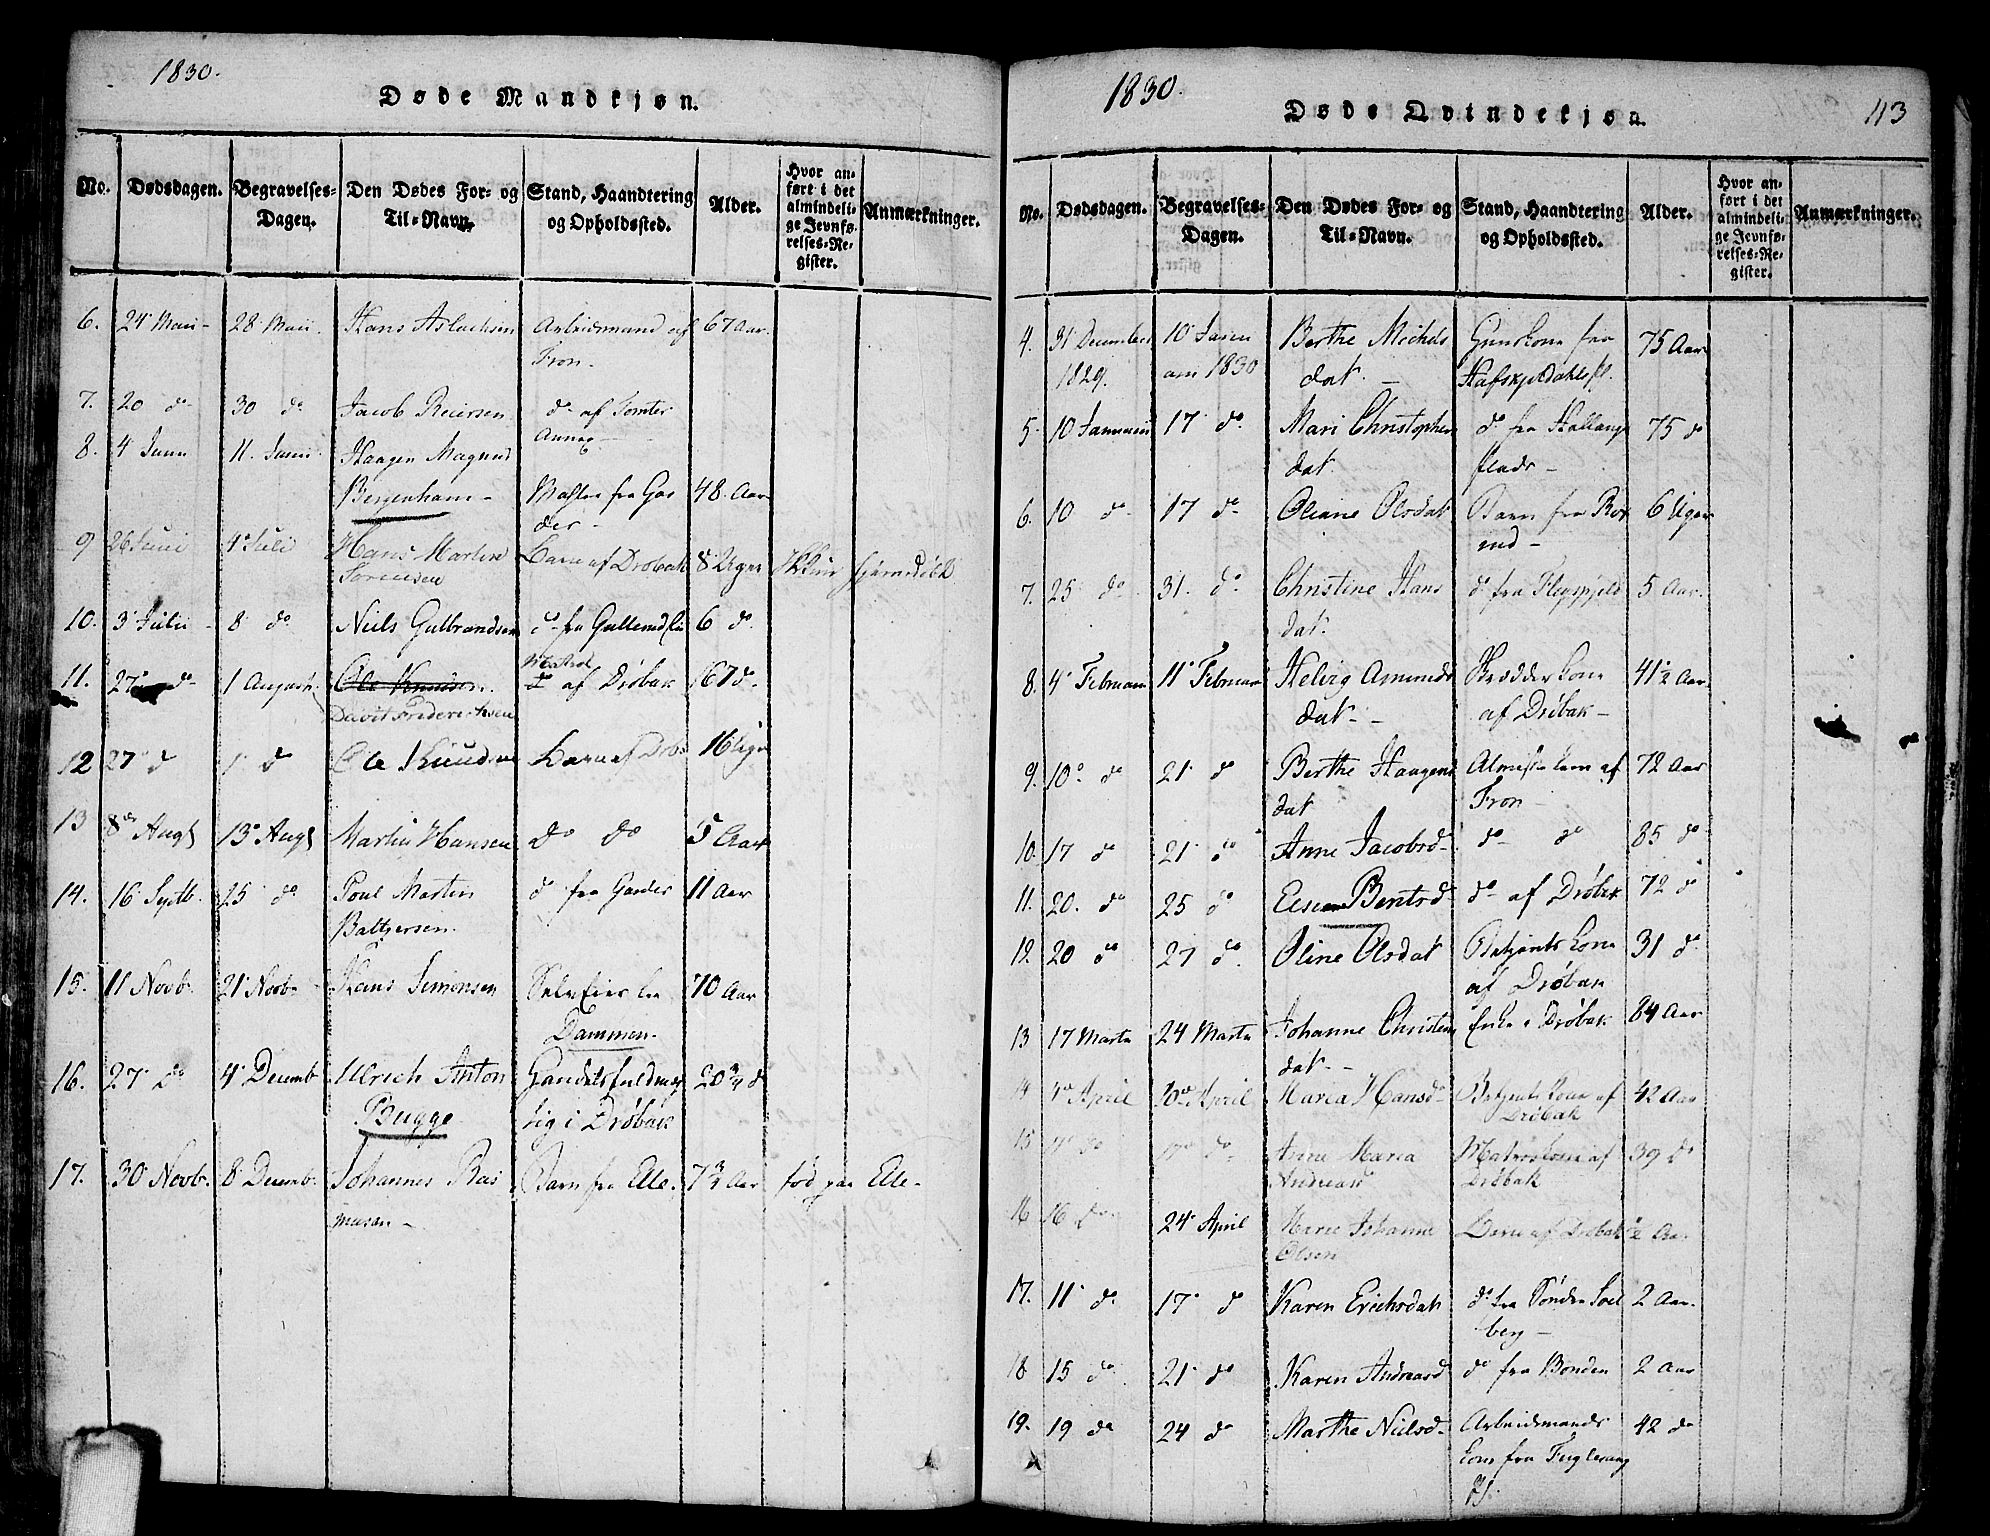 1830.
Døde Mandkjøn.
No. Dødsdagen. Begravelses-Dagen. Den Dødes For- og Til-Navn. Stand, Haandtering og Opholdssted. Alder. Hvor anført i det almindelige Jevnførelses-Register. Anmærkninger.
6. 24 Maii 28 Maii Hans Aslachsen Arbeidsmand af 67 Aar.
Fron.
7. 20 do 30 do Jacob Reiersen do af Tomter
8. 4 Juni 11. Juni Haagen Magnus
Bergenham Gar 48. Aar
der
9 26 Juni 4 Juli Hans Martin Barn af Drøbak 8 Uger
Sørensen
10. 3 Julii 8 do Niels Gulbrandsen do fra 6 do
Matros
11. 27 do 1 August Ole Knudsen do af Drøbak 67 do
Davit Frederichsen
12 27 d 1 d Ole Knudsen Barn af Drøb 16 Uger
13 8de Augt 13 Augt Martin Hansen do do 5 Aar
14. 16 Septb. 25 do Poul Morten do fra Garder 11 Aar
Baltzersen.
15. 11 Novb. 21 Novb Hans Simonsen Selveier fra 70 Aar
Dammen.
16. 27 do 4 Decemb Ulrich Anton Handelsfuldmæg 20 3/4 d
Bugge tig i Drøbak
17. 30 Novb. 8 Decemb. Johannes Ras Barn fra Elle. 7 3/4 Aar fød paa Elle.
musen
1830.
Døde Qvindekjøn.
113
No. Dødsdagen. Begravelses-Dagen. Den Dødes For- og Til-Navn. Stand, Haandtering og Opholdssted. Alder. Hvor anført i det almindelige Jevnførelses-Register. Anmærkninger.
4. 31 December 10 Janu Berthe Michels kone fra 75 Aar
1829. am 1830 dat.
5. 10 Januarii 17 do Mari Christophers do fra Hallang 75 do
dat.
6. 10 do 17 do Oliane Olsdat Barn fra 6 Uger
7. 25 do 31. do Christine Hans do fra 5 Aar.
dat.
8. 4 Februar 11 Februar Helvig Amunds Skrædder kone 41 1/2 Aar
dat. af Drøbak
9. 10 do 21 d Berthe Haagens lem af 72 Aar
dat Fron
10. 17 do 21 do Anne Jacobsd do do 85 do
11. 20. do 25 do Bentsd do af Drøbak 72 do
12. 20 do 27 do Oline Olsdat Betjents kone 31 do
af Drøbak
13 17 Marts 24 Marts Johanne Christens Enke i Drøbak 84 Aar
dat.
14 4 April 10 April Maria Hansd Betjents kone af 42 Aar
Drøbak
15 do do Anne Maria Matroskone af 39 do
Andreasd Drøbak
16 16 do 24 April Marie Johanne Barn af Drøbak 2 Aar
Olsen
17. 11 do 17 d Karen Erichsdat do fra Søndre Sol 2 Aar.
berg
18 15 do 21 do Karen Andreasd do fra Bonden 2 Aar
19. 19 do 24 do Marthe Nielsd Arbeidsmands 42 do
kone fra Fuglesang
Pl.